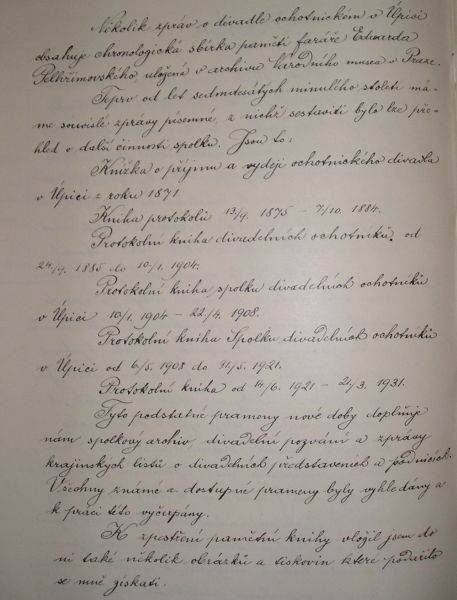 Několik zpráv o divadle ochotnickém v Úpici
obsahuje chronologická sbírka pamětí faráře Edwarda
Pelhřimovského uložená v archivu Národního musea v Praze.
Teprv od let sedmdesátých minulého století má-
me souvislé zprávy písemné, z nichž sestaviti bylo lze pře-
hled o další činnosti spolku. Jsou to:
Knížka o příjmu a vydeji ochotnického divadla
v Úpici z roku 1871.
Kniha protokolů 13/4. 1875 – 7/10. 1884.
Protokolní kniha divadelních ochotníků od
24/4. 1885 do 10/1. 1904.
Protokolní kniha spolku divadelních ochotníků
v Úpici 10/1. 1904 – 22/4. 1908.
Protokolní kniha Spolku divadelních ochotníků
v Úpici od 6/5. 1908 do 31/5. 1921.
Protokolní kniha od 14/6. 1921 – 21/3. 1931.
Tyto podstatné prameny nové doby doplňují
nám spolkový archiv, divadelní pozvání a zprávy
krajinských listů o divadelních představeních a podnicích.
Všechny známé a dostupné prameny byly vyhledávy a
k práci této vyčerpány.
K zpestření pamětní knihy vložil jsem do
ní také několik obrázků a tiskovin které podařilo
se mně získati.